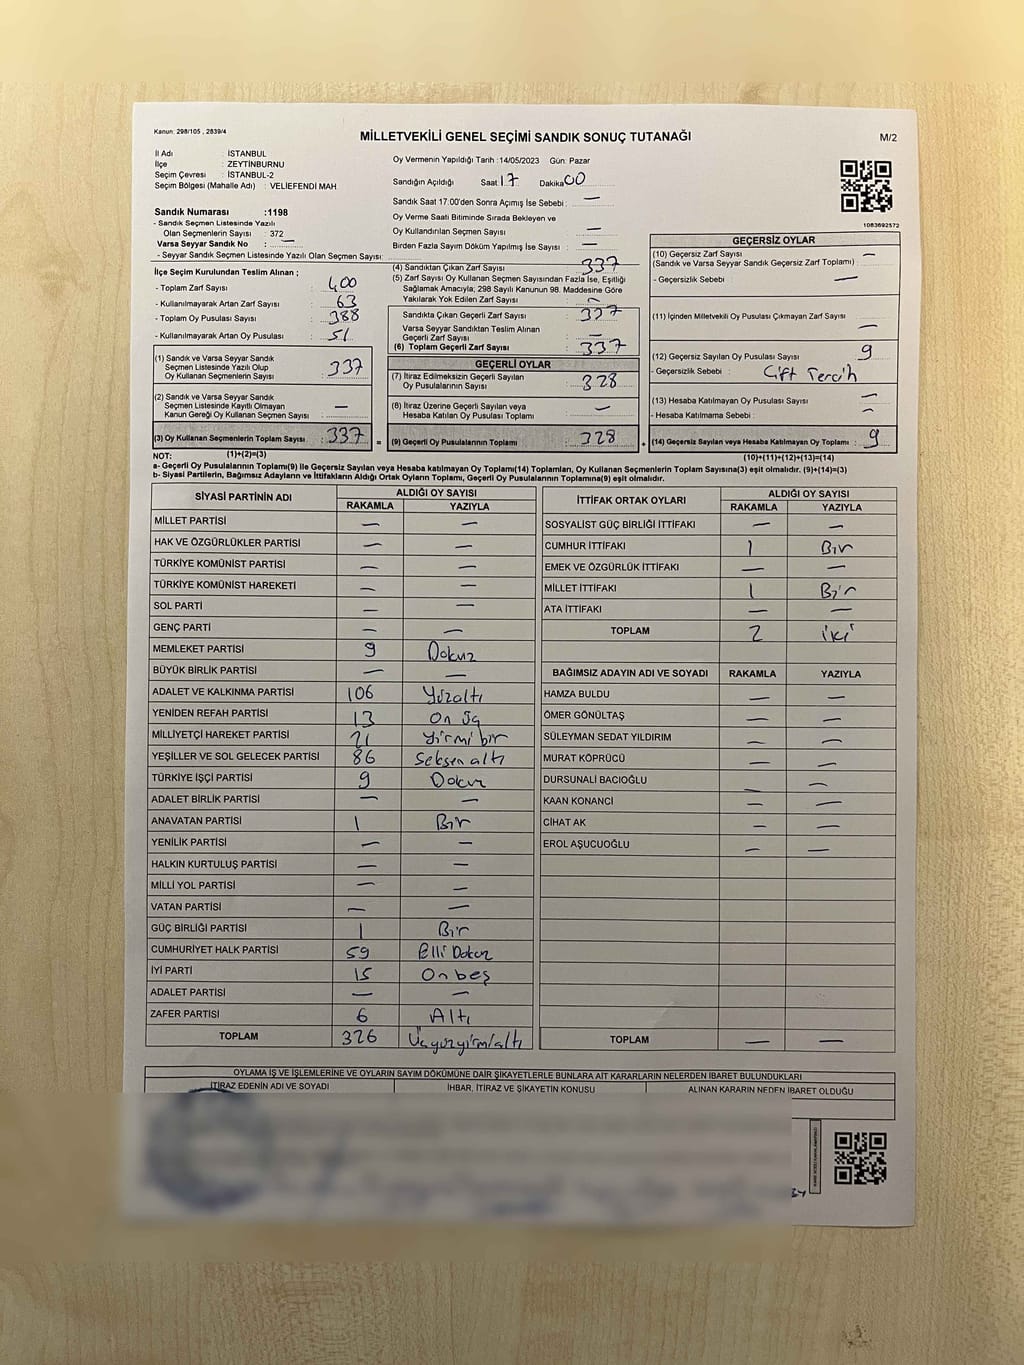 Kanun: 298/105 , 2839/4
MİLLETVEKİLİ GENEL SEÇİMİ SANDIK SONUÇ TUTANAĞI
M/2
İl Adı : İSTANBUL
İlçe : ZEYTİNBURNU
Seçim Çevresi : İSTANBUL-2
Seçim Bölgesi (Mahalle Adı) : VELİEFENDİ MAH
Sandık Numarası :1198
- Sandık Seçmen Listesinde Yazılı
Olan Seçmenlerin Sayısı: 372
Varsa Seyyar Sandık No : —
- Seyyar Sandık Seçmen Listesinde Yazılı Olan Seçmen Sayısı:
Oy Vermenin Yapıldığı Tarih :14/05/2023 Gün: Pazar
Sandığın Açıldığı Saat 17 Dakika 00
Sandık Saat 17:00'den Sonra Açımış İse Sebebi : —
Oy Verme Saati Bitiminde Sırada Bekleyen ve
Oy Kullandırılan Seçmen Sayısı —
Birden Fazla Sayım Döküm Yapılmış İse Sayısı —
1083692572
İlçe Seçim Kurulundan Teslim Alınan ;
- Toplam Zarf Sayısı : 400
- Kullanılmayarak Artan Zarf Sayısı : 63
- Toplam Oy Pusulası Sayısı : 388
- Kullanılmayarak Artan Oy Pusulası : 51
(1) Sandık ve Varsa Seyyar Sandık
Seçmen Listesinde Yazılı Olup
Oy Kullanan Seçmenlerin Sayısı : 337
(2) Sandık ve Varsa Seyyar Sandık
Seçmen Listesinde Kayıtlı Olmayan
Kanun Gereği Oy Kullanan Seçmen Sayısı : —
(3) Oy Kullanan Seçmenlerin Toplam Sayısı : 337 =
(1)+(2)=(3)
(4) Sandıktan Çıkan Zarf Sayısı : 337
(5) Zarf Sayısı Oy Kullanan Seçmen Sayısından Fazla İse, Eşitliği
Sağlamak Amacıyla; 298 Sayılı Kanunun 98. Maddesine Göre
Yakılarak Yok Edilen Zarf Sayısı : —
Sandıkta Çıkan Geçerli Zarf Sayısı : 337
Varsa Seyyar Sandıktan Teslim Alınan
Geçerli Zarf Sayısı : —
(6) Toplam Geçerli Zarf Sayısı : 337
GEÇERLİ OYLAR
(7) İtiraz Edilmeksizin Geçerli Sayılan
Oy Pusulalarının Sayısı : 328
(8) İtiraz Üzerine Geçerli Sayılan veya
Hesaba Katılan Oy Pusulası Toplamı : —
(9) Geçerli Oy Pusulalarının Toplamı : 328 +
GEÇERSİZ OYLAR
(10) Geçersiz Zarf Sayısı : —
(Sandık ve Varsa Seyyar Sandık Geçersiz Zarf Toplamı)
- Geçersizlik Sebebi : —
(11) İçinden Milletvekili Oy Pusulası Çıkmayan Zarf Sayısı : —
(12) Geçersiz Sayılan Oy Pusulası Sayısı : 9
- Geçersizlik Sebebi : Çift Tercih
(13) Hesaba Katılmayan Oy Pusulası Sayısı : —
- Hesaba Katılmama Sebebi : —
(14) Geçersiz Sayılan veya Hesaba Katılmayan Oy Toplamı : 9
(10)+(11)+(12)+(13)=(14)
NOT:
a- Geçerli Oy Pusulalarının Toplamı(9) ile Geçersiz Sayılan veya Hesaba katılmayan Oy Toplamı(14) Toplamları, Oy Kullanan Seçmenlerin Toplam Sayısına(3) eşit olmalıdır. (9)+(14)=(3)
b- Siyasi Partilerin, Bağımsız Adayların ve İttifakların Aldığı Ortak Oyların Toplamı, Geçerli Oy Pusulalarının Toplamına(9) eşit olmalıdır.
SİYASİ PARTİNİN ADI ALDIĞI OY SAYISI
RAKAMLA YAZIYLA
MİLLET PARTİSİ — —
HAK VE ÖZGÜRLÜKLER PARTİSİ — —
TÜRKİYE KOMÜNİST PARTİSİ — —
TÜRKİYE KOMÜNİST HAREKETİ — —
SOL PARTİ — —
GENÇ PARTİ — —
MEMLEKET PARTİSİ 9 Dokuz
BÜYÜK BİRLİK PARTİSİ — —
ADALET VE KALKINMA PARTİSİ 106 Yüzaltı
YENİDEN REFAH PARTİSİ 13 On üç
MİLLİYETÇİ HAREKET PARTİSİ 21 Yirmi bir
YEŞİLLER VE SOL GELECEK PARTİSİ 86 Seksen altı
TÜRKİYE İŞÇİ PARTİSİ 9 Dokuz
ADALET BİRLİK PARTİSİ — —
ANAVATAN PARTİSİ 1 Bir
YENİLİK PARTİSİ — —
HALKIN KURTULUŞ PARTİSİ — —
MİLLİ YOL PARTİSİ — —
VATAN PARTİSİ — —
GÜÇ BİRLİĞİ PARTİSİ 1 Bir
CUMHURİYET HALK PARTİSİ 59 Elli Dokuz
İYİ PARTİ 15 On beş
ADALET PARTİSİ — —
ZAFER PARTİSİ 6 Altı
TOPLAM 326 Üçyüzyirmialtı
İTTİFAK ORTAK OYLARI ALDIĞI OY SAYISI
RAKAMLA YAZIYLA
SOSYALİST GÜÇ BİRLİĞİ İTTİFAKI — —
CUMHUR İTTİFAKI 1 Bir
EMEK VE ÖZGÜRLÜK İTTİFAKI — —
MİLLET İTTİFAKI 1 Bir
ATA İTTİFAKI — —
TOPLAM 2 iki
BAĞIMSIZ ADAYIN ADI VE SOYADI RAKAMLA YAZIYLA
HAMZA BULDU — —
ÖMER GÖNÜLTAŞ — —
SÜLEYMAN SEDAT YILDIRIM — —
MURAT KÖPRÜCÜ — —
DURSUNALİ BACIOĞLU — —
KAAN KONANCİ — —
CİHAT AK — —
EROL AŞUCUOĞLU — —
TOPLAM — —
OYLAMA İŞ VE İŞLEMLERİNE VE OYLARIN SAYIM DÖKÜMÜNE DAİR ŞİKAYETLERLE BUNLARA AİT KARARLARIN NELERDEN İBARET BULUNDUKLARI
İTİRAZ EDENİN ADI VE SOYADI İHBAR, İTİRAZ VE ŞİKAYETİN KONUSU ALINAN KARARIN NEDEN İBARET OLDUĞU